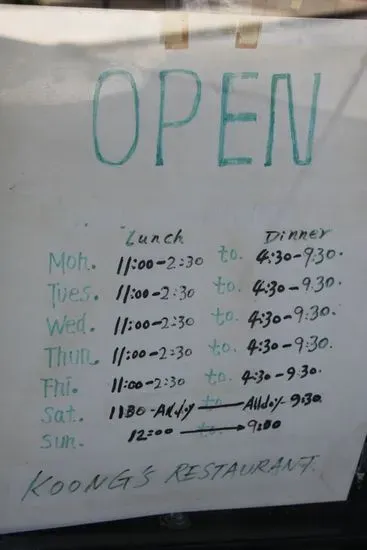 OPEN
Lunch Dinner
Mon. 11:00-2:30 to. 4:30-9:30.
Tues. 11:00-2:30 to. 4:30-9:30.
Wed. 11:00-2:30 to. 4:30-9:30.
Thur. 11:00-2:30 to. 4:30-9:30.
Fri. 11:00-2:30 to. 4:30-9:30.
Sat. 11:30-All day to Allday-9:30
Sun. 12:00 to. 9:00
KOONG'S RESTAURANT.